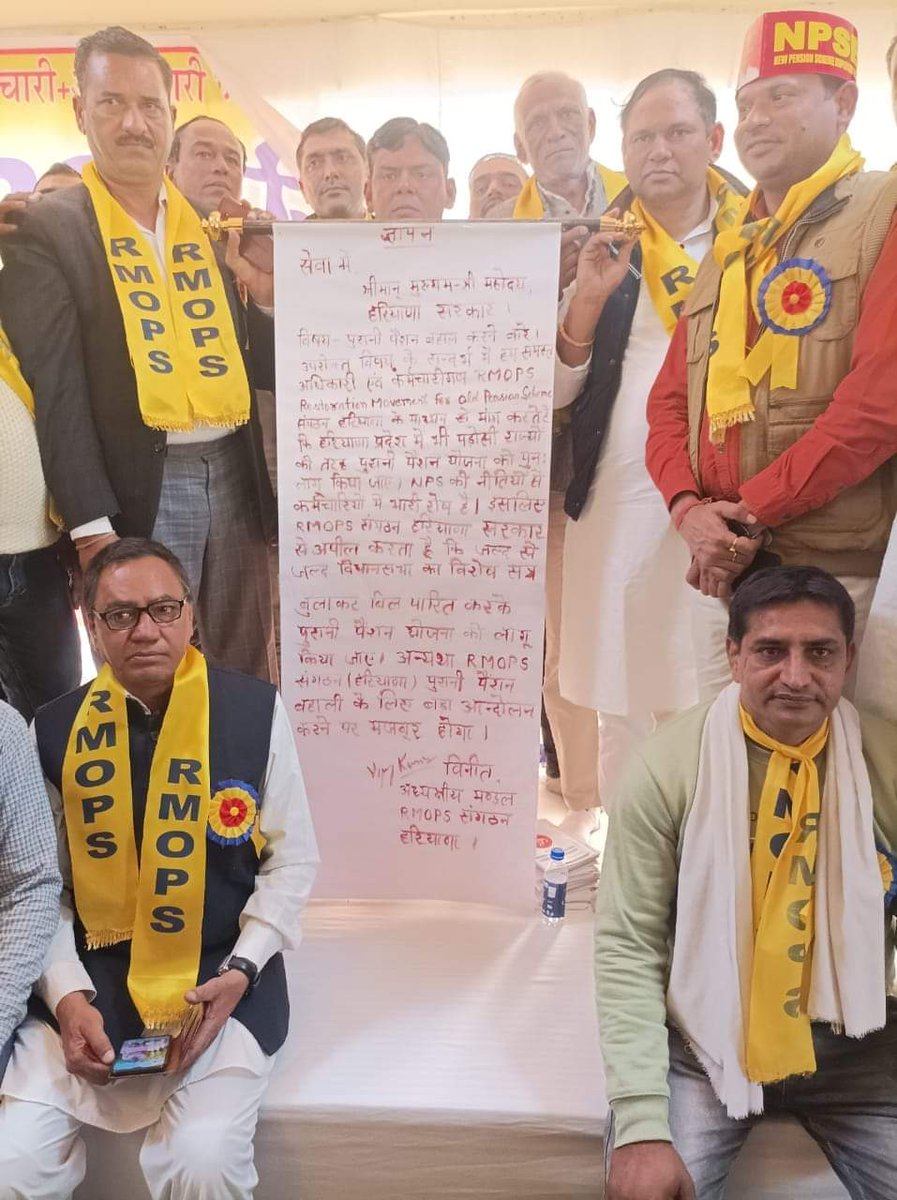 चारी+
NPSE
NEW PENSION SCHEME
ज्ञापन
सेवा में
श्रीमान् मुख्यमन्त्री महोदय,
हरियाणा सरकार।
विषय - पुरानी पैंशन बहाल करने बारे।
उपरोक्त विषय के सन्दर्भ में हम समस्त
अधिकारी एवं कर्मचारीगण RMOPS
Restoration Movement For old Pension Scheme
संगठन हरियाणा के माध्यम से मांग करते है
कि हरियाणा प्रदेश में भी पडोसी राज्यों
की तरह पुरानी पैंशन योजना को पुनः
लागू किया जाए। NPS की नीतियों से
कर्मचारियों में भारी रोष है। इसलिए
RMOPS संगठन हरियाणा सरकार
से अपील करता है कि जल्द से
जल्द विधानसभा का विशेष सत्र
बुलाकर बिल पारित करके
पुरानी पैंशन योजना को लागू
किया जाए। अन्यथा RMOPS
संगठन (हरियाणा) पुरानी पैंशन
बहाली के लिए बडा आन्दोलन
करने पर मजबूर होगा।
Kumar विनीत
अध्यक्षीय मण्डल
RMOPS संगठन
हरियाणा।
RMOPS
RMOPS
RMOPS
RMOPS